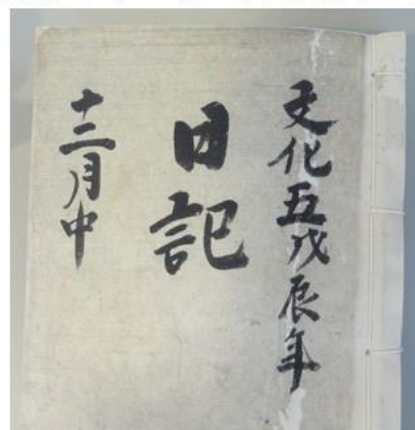 文化五戊辰年
日記
十二月中